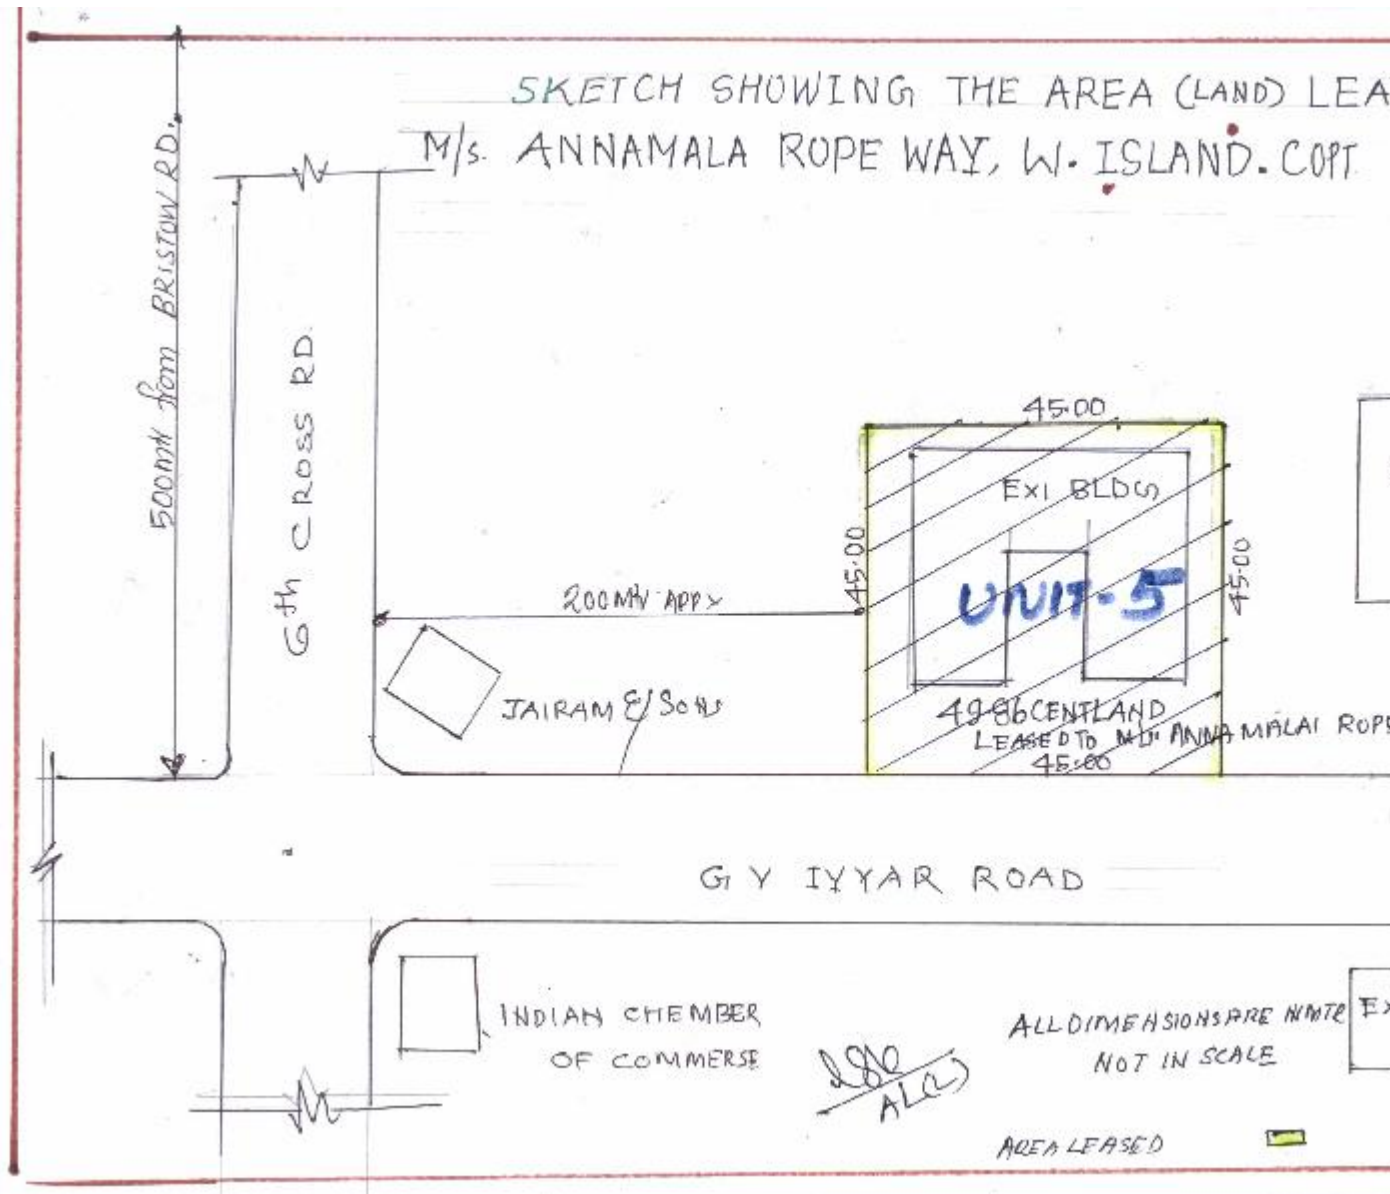 SKETCH SHOWING THE AREA (LAND) LEA
M/s. ANNAMALA ROPE WAY, W. ISLAND. COPT
500Mtr from BRISTOW RD.
6th CROSS RD.
45.00
EXI BLDG
45.00
45.00
UNIT-5
200Mtr APPX
JAIRAM & SONS
49.86 CENTLAND
LEASED TO M/s ANNAMALAI ROPE
45.00
G V IYYAR ROAD
INDIAN CHEMBER
OF COMMERSE
ALL DIMENSIONS ARE IN MTR
NOT IN SCALE
EX
AL(L)
AREA LEASED